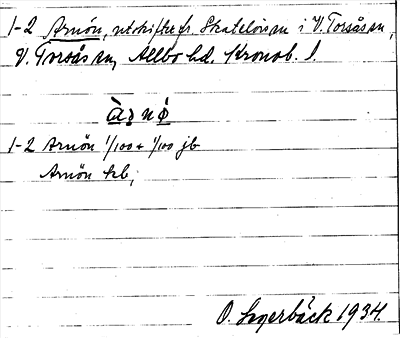 1-2 Arnön, utskifter fr. Skatelövsn i V. Torsåsn,
V. Torsåsn, Allbo hd. Kronob. l.
1-2 Arnön 1/100 + 1/100 jb
Arnön kb;
O. Segerbäck 1934.